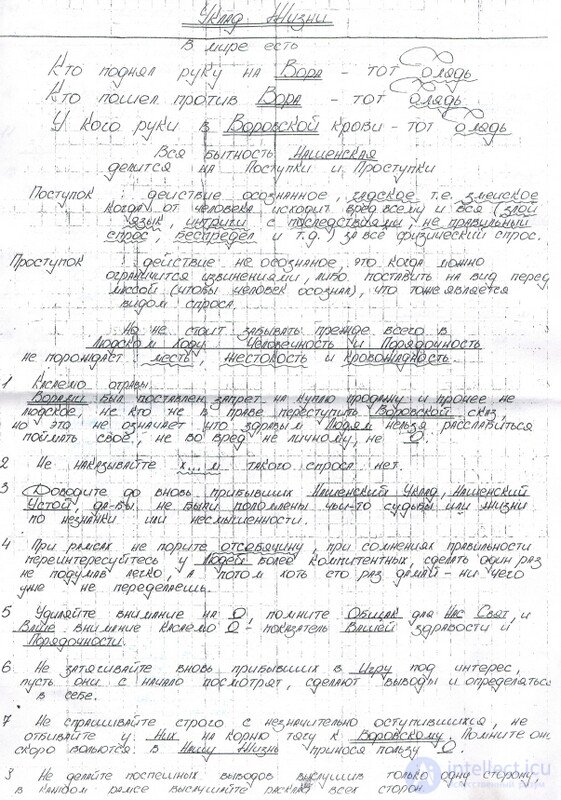 Уклад Жизни
В мире есть
Кто поднял руку на Вора - тот блядь
Кто пошел против Вора - тот блядь
У кого руки в Воровской крови - тот блядь
Вся бытность Нашенская
делится на Поступки и Проступки
Поступок : действие осознанное, гадское т.е. змейское
когда от человека исходит вред всему и вся (злой
язык, интриги с последствиями, не правильный
спрос, беспредел и т.д.) за всё физический спрос.
Проступок : действие не осознанное, это когда можно
ограничится извинениями, либо поставить на вид перед
массой (чтобы человек осознал), что тоже является
видом спроса.
Но не стоит забывать прежде всего в
Людском Ходу Человечность и Порядочность
не порождает месть, жестокость и кровожадность.
1 Касаемо отравы.
Ворами был поставлен запрет на куплю продажу и прочее не
людское, не кто не в праве переступить Воровской сказ,
но эта не означает что здравым Людям нельзя расслабиться
поймать своё, не во вред не личному, не О.
2 Не наказывайте х...м такого спроса нет.
3 Доводите до вновь прибывших Нашенский Уклад, Нашенский
Устой, да-бы не были поломлены чьи-то судьбы или жизни
по незнанки или несмышленности.
4 При рамсах не порите отсебячину, при сомнениях правильности
переинтересуйтесь у Людей более компитентных, сделать один раз
не подумав легко, а потом хоть сто раз думай - ни чего
уже не переделаешь.
5 Уделяйте внимание на О, помните Общак для Нас Свят, и
Ваше внимание касаемо О - показатель Вашей здравости и
Порядочности.
6 Не затягивайте вновь прибывших в Игру под интерес,
пусть они с начало посмотрят, сделают выводы и определяться
в себе.
7 Не спрашивайте строго с незначительно оступившихся, не
отбивайте у Них на корню тягу к Воровскому. Помните они
скоро вольются в Нашу Жизнь принося пользу О.
8 Не делайте поспешных выводов выслушив только одну сторону,
в каждом рамсе выслушийте расклад всех сторон.
intellect.icu